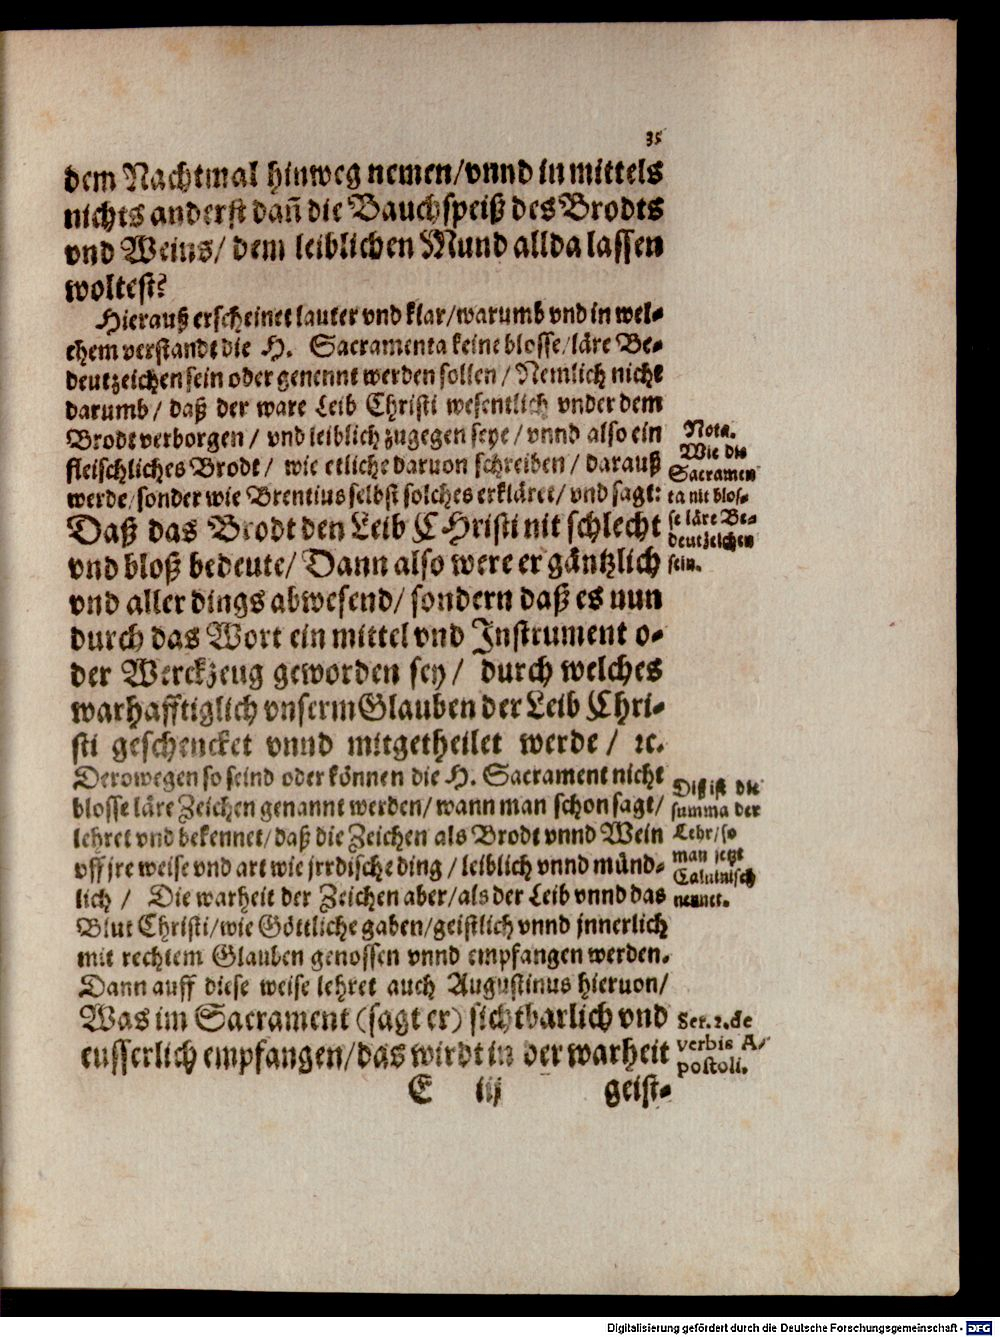 35
dem Nachtmal hinweg nemen/vnnd in mittels
nichts anderst dañ die Bauchspeiß des Brodts
vnd Weins/ dem leiblichen Mund allda lassen
woltest?
Hierauß erscheinet lauter vnd klar/warumb vnd in wel-
chem verstandt die H. Sacramenta keine blosse/läre Be-
deutzeichen sein oder genennt werden sollen/ Nemlich nicht
darumb/ daß der ware Leib Christi wesentlich vnder dem
Brodt verborgen/ vnd leiblich zugegen seye/ vnnd also ein
fleischliches Brodt/ wie etliche daruon schreiben/ darauß
werde/sonder wie Brentius selbst solches erkläret/ vnd sagt:
Daß das Brodt den Leib CHristi nit schlecht
vnd bloß bedeute/ Dann also were er gäntzlich
vnd aller dings abwesend/ sondern daß es nun
durch das Wort ein mittel vnd Instrument o-
der Werckzeug geworden sey/ durch welches
warhafftiglich vnserm Glauben der Leib Chri-
sti geschencket vnnd mitgetheilet werde/ ꝛc.
Derowegen so seind oder können die H. Sacrament nicht
blosse läre Zeichen genannt werden/ wann man schon sagt/
lehret vnd bekennet/ daß die Zeichen als Brodt vnnd Wein
vff jre weise vnd art wie jrrdische ding/ leiblich vnnd münd-
lich/ Die warheit der Zeichen aber/ als der Leib vnnd das
Blut Christi/wie Göttliche gaben/geistlich vnnd jnnerlich
mit rechtem Glauben genossen vnnd empfangen werden.
Dann auff diese weise lehret auch Augustinus hieruon/
Was im Sacrament (sagt er) sichtbarlich vnd
eusserlich empfangen/das wirdt in der warheit
E iij geist-
Nota.
Wie die
Sacramen
ta nit blos-
se läre Be-
deutzeichen
sein.
Diß ist die
summa der
Lehr/so
man jetzt
Caluinisch
nennet.
Ser. 2. de
verbis A-
postoli.
Digitalisierung gefördert durch die Deutsche Forschungsgemeinschaft - DFG